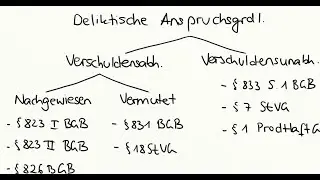 Deliktische Anspruchsgrdl.
Verschuldensabh.
Verschuldensunabh.
- § 833 S. 1 BGB
- § 7 StVG
- § 1 ProdHaftG
Nachgewiesen
- § 823 I BGB
- § 823 II BGB
- § 826 BGB
Vermutet
- § 831 BGB
- § 18 StVG